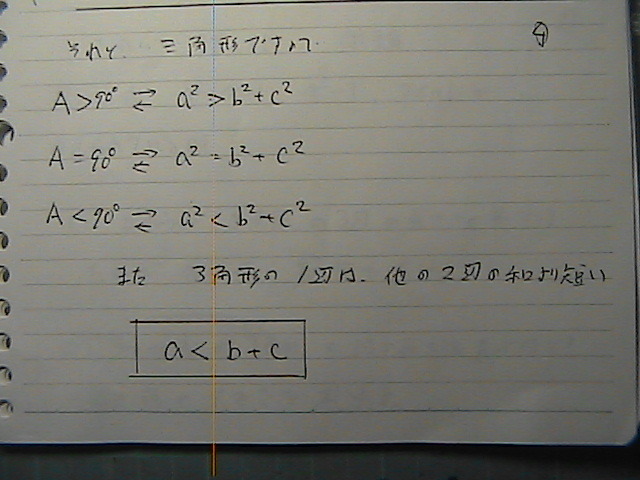 それと 三角形ですので ④
A > 90° ⇄ a² > b² + c²
A = 90° ⇄ a² = b² + c²
A < 90° ⇄ a² < b² + c²
また 3角形の1辺は、他の2辺の和より短い
a < b + c